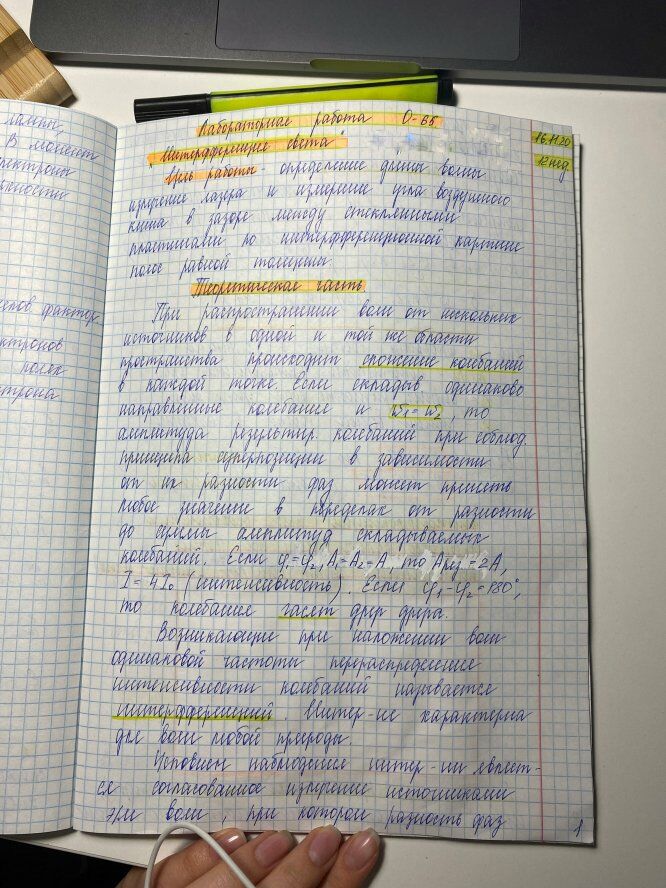 лампы,
В момент
электроны
фактор.
электронов
полек
электрона
Лабораторная работа О-65
16.11.20
"Интерференция света"
12 нед.
Цель работы - определение длины волны
излучения лазера и измерение угла воздушного
клина в зазоре между стеклянными
пластинами по интерференционной картине
полос равной толщины
Теоретическая часть
При распространении волн от нескольких
источников в одной и той же области
пространства происходит сложение колебаний
в каждой точке. Если складыв одинаково
направленные колебания и ω₁=ω₂, то
амплитуда результир. колебаний при соблюд.
принципа суперпозиции в зависимости
от их разности фаз может принять
любое значение в пределах от разности
до суммы амплитуд складываемых
колебаний. Если φ₁=φ₂, A₁=A₂=A, то Aрез=2A,
I=4I₀ (интенсивность). Если φ₁-φ₂=180°,
то колебания гасят друг друга.
Возникающее при наложении волн
одинаковой частоты перераспределение
интенсивности колебаний называется
интерференцией. Интер-ия характерна
для волн любой природы.
Условием наблюдения интер-ии являет-
ся согласованное излучение источниками
эл/м волн, при котором разность фаз
1